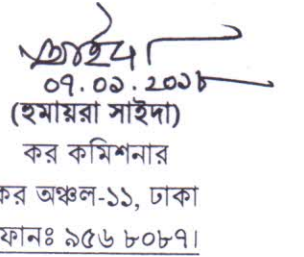 ০৭.০১.২০১৮
(হুমায়রা সাইদা)
কর কমিশনার
কর অঞ্চল-১১, ঢাকা
ফোনঃ ৯৫৬ ৮০৮৭।